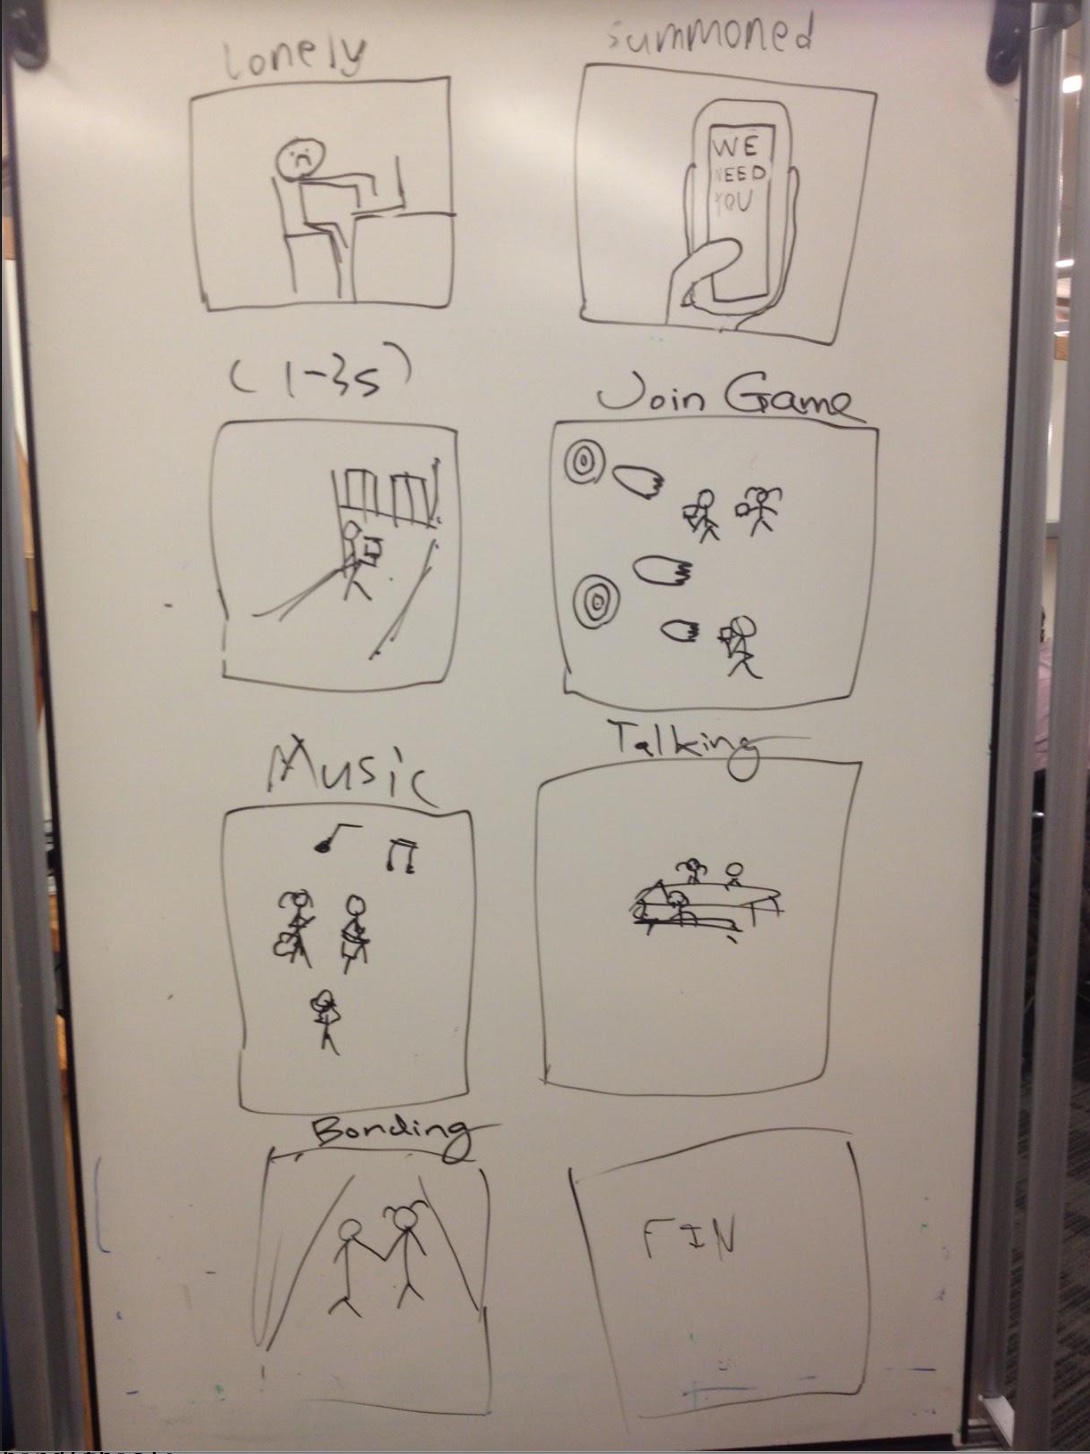 Lonely
Summoned
WE
NEED
YOU
(1-3s)
Join Game
Music
Talking
Bonding
FIN